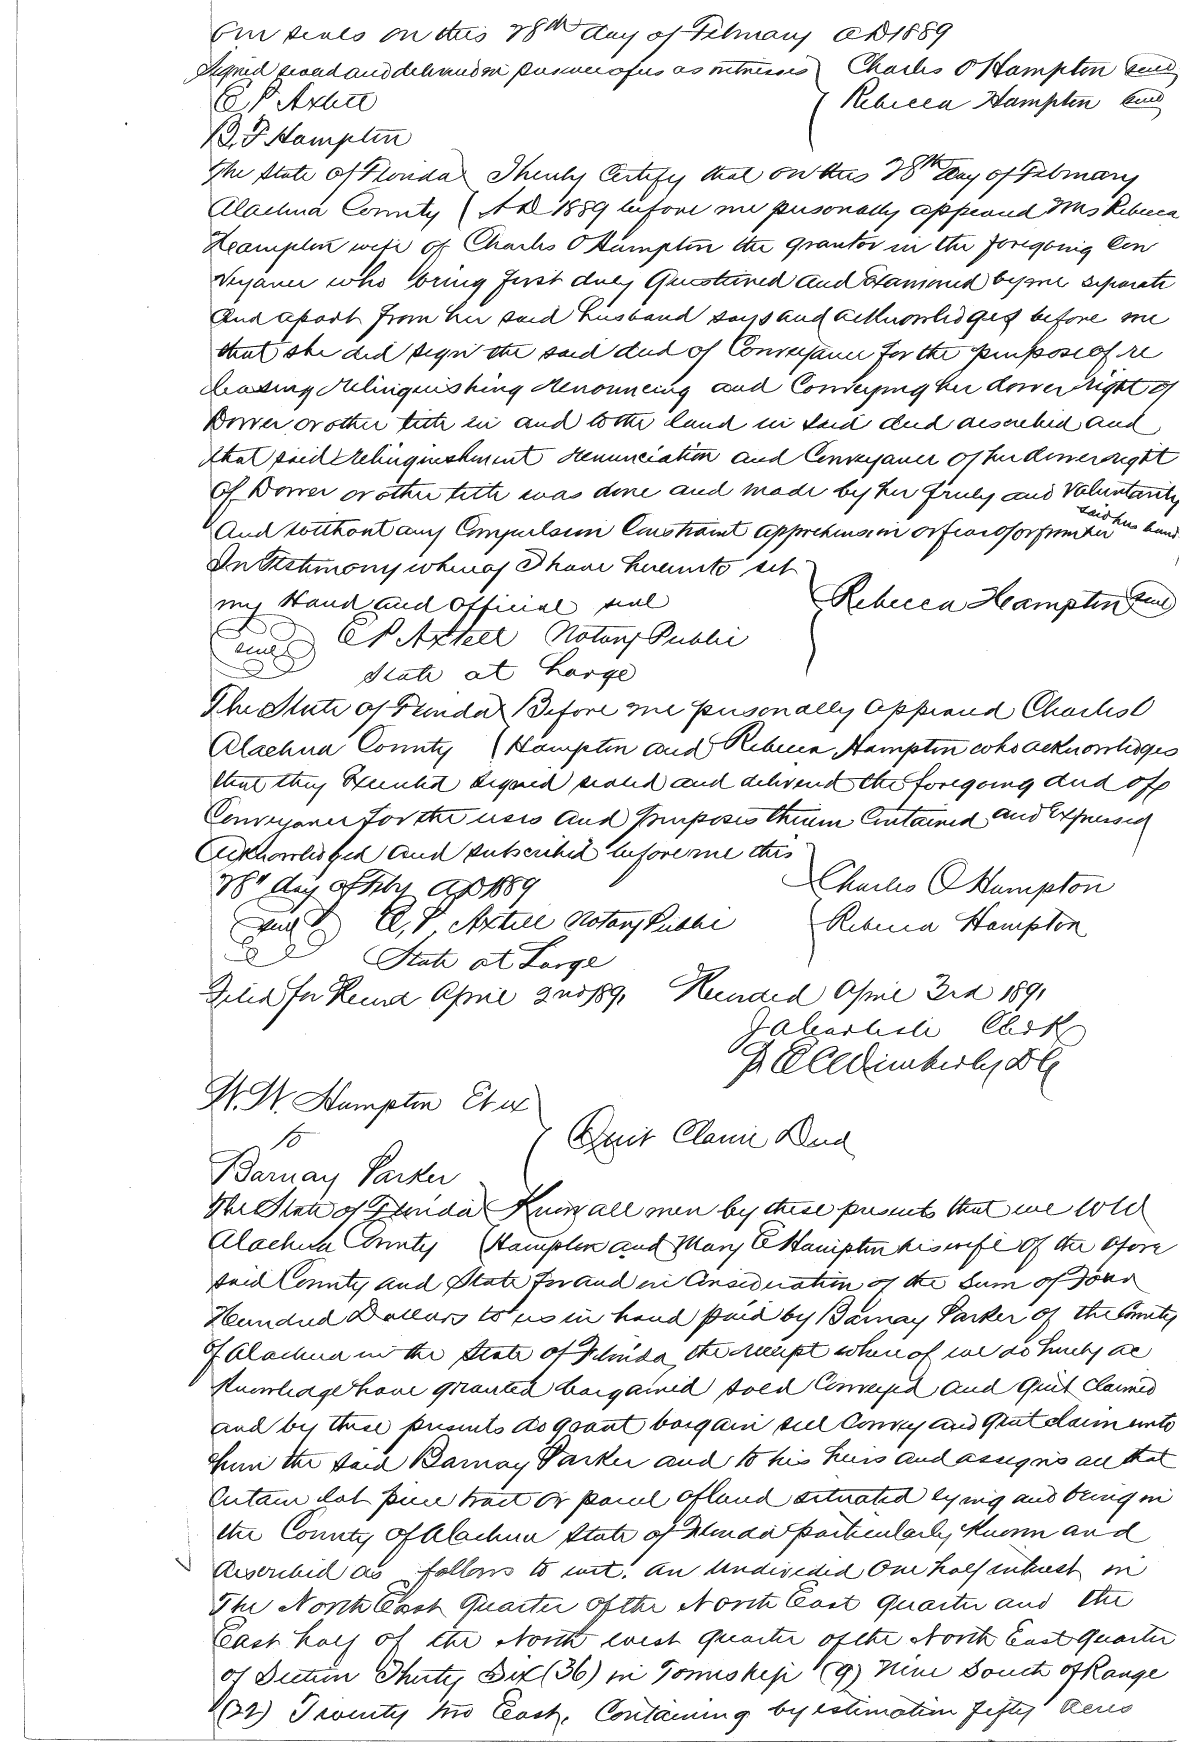 Our seals on this 28th day of February AD 1889
Signed sealed and delivered in presence of us as witnesses } Charles O Hampton seal
E P Axtell } Rebecca Hampton seal
B. F Hampton
The State of Florida } I hereby Certify that on this 28th Day of February
Alachua County } AD 1889 before me personally appeared Mrs Rebecca
Hampton wife of Charles O Hampton the grantor in the foregoing Con
veyance who being first duly Questioned and Examined by me separate
and apart from her said husband says and acknowledges before me
that she did sign the said deed of Conveyance for the purpose of re
leasing relinquishing renouncing and Conveying her dower right of
Dower or other title in and to the land in said deed described and
that said relinquishment renunciation and Conveyance of her dower right
of Dower or other title was done and made by her freely and Voluntarily
and without any Compulsion Constraint apprehension or fear of or from her said husband
In Testimony whereof I have hereunto set }
my Hand and official seal } Rebecca Hampton seal
seal E P Axtell Notary Public
State at Large
The State of Florida } Before me personally appeared Charles O
Alachua County } Hampton and Rebecca Hampton who acknowledges
that they Executed signed sealed and delivered the foregoing deed of
Conveyance for the uses and purposes therein Contained and Expressed
Acknowledged and subscribed before me this }
28th day of Feby AD 1889 } Charles O Hampton
seal E. P. Axtell Notary Public } Rebecca Hampton
State at Large
Filed for Record April 2nd 1891 Recorded April 3rd 1891
J A Carlisle Clerk
Wimberly D C
W. W. Hampton Et ux }
to } Quit Claim Deed
Barnay Parker
The State of Florida } Know all men by these presents that we W W
Alachua County } Hampton and Mary E Hampton his wife of the afore
said County and State for and in Consideration of the Sum of Four
Hundred Dollars to us in hand paid by Barnay Parker of the County
of Alachua in the State of Florida, the receipt where of we do hereby ac
knowledge have granted bargained sold Conveyed and Quit Claimed
and by these presents do grant bargain sell Convey and Quit claim unto
him the said Barnay Parker and to his heirs and assigns all that
Certain lot piece tract or parcel of land situated lying and being in
the County of Alachua State of Florida particularly Known and
described as follows to wit. An Undivided One half interest in
The North East Quarter of the North East quarter and the
East half of the North west quarter of the North East Quarter
of Section Thirty Six (36) in Township (9) Nine South of Range
(22) Twenty two East. Containing by estimation fifty acres